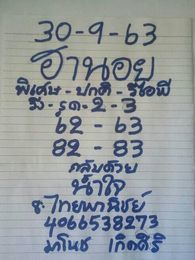 30-9-63
ฮานอย
พิเศษ - ปกติ - วีไอพี
วิ่ง - รูด - 2 - 3
62 - 63
82 - 83
กลับด้วย
น้ำใจ
ธ.ไทยพาณิชย์
4066538273
มาโนช เกิดศิริ